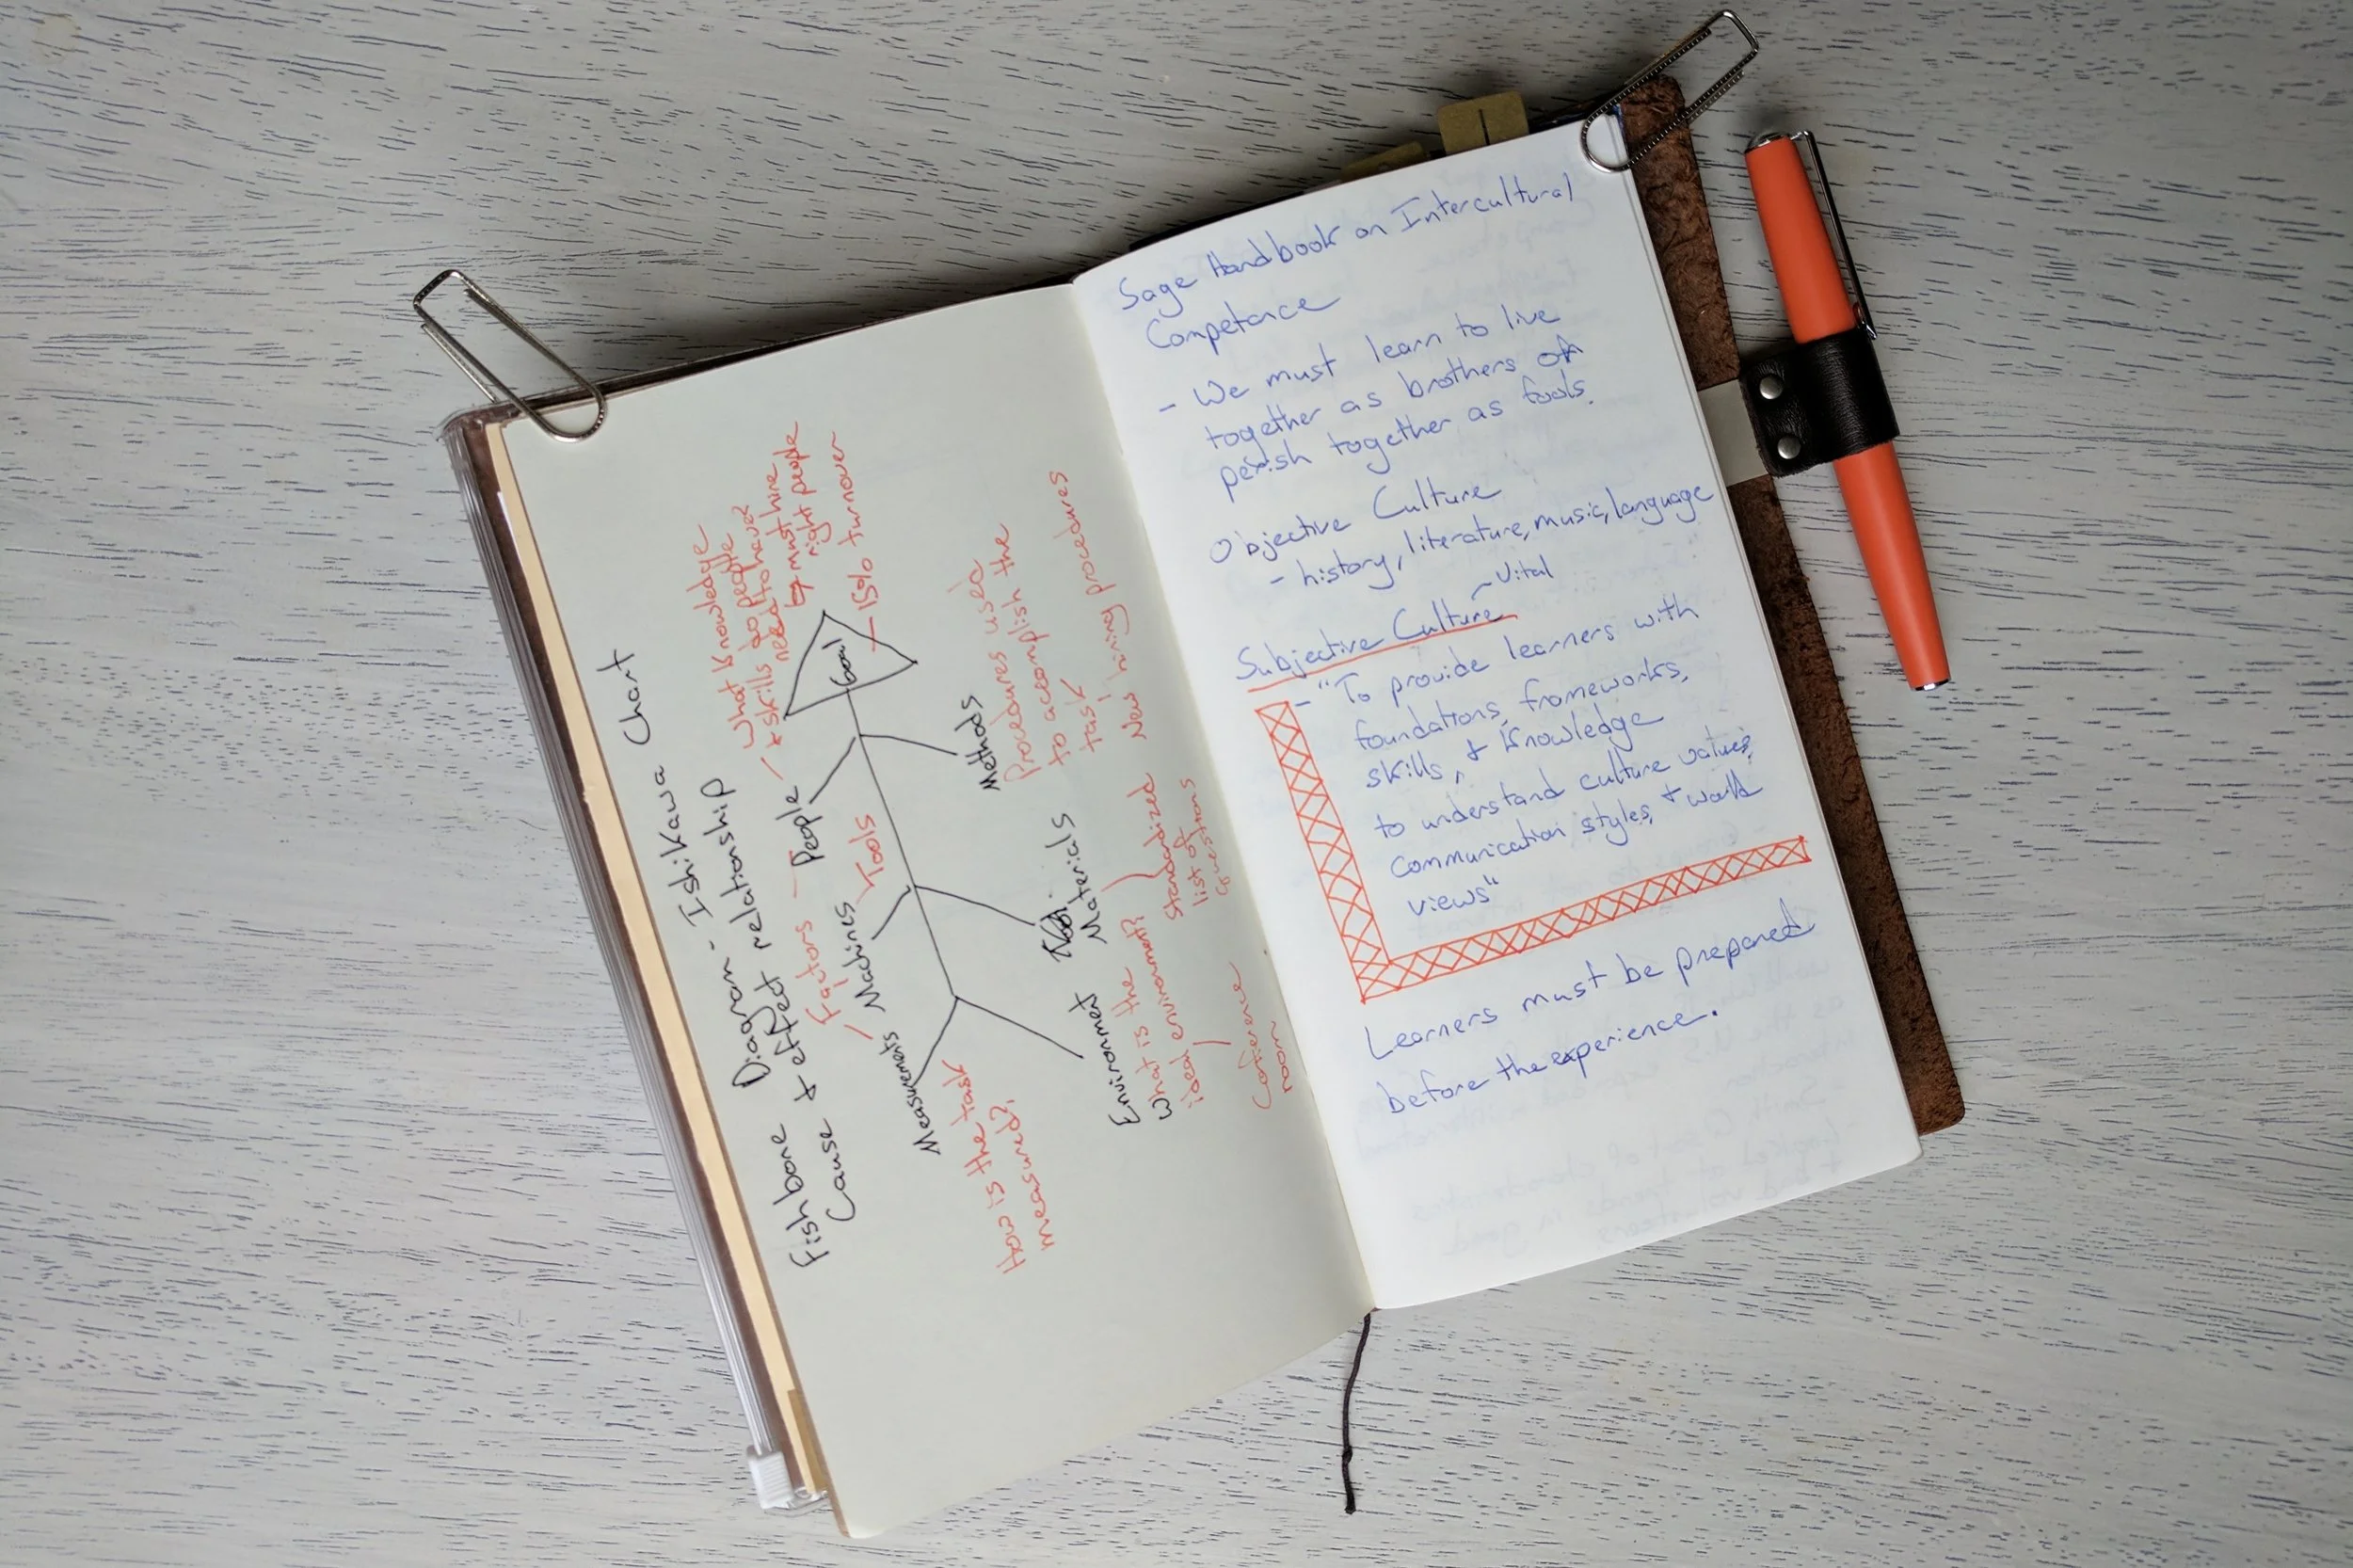 Fishbone Diagram - Ishikawa Chart
Cause & effect relationship
Factors
People
What knowledge
& skills do people
need to have?
must hire
right people
Goal
15% turnover
Machines
Tools
Measurements
How is the task
measured?
Methods
Procedures used
to accomplish the
task
New hiring procedures
Materials
Standardized
list of
questions
Environment
What is the
ideal environment?
Conference
room
Sage Handbook on Intercultural
Competence
- We must learn to live
together as brothers or
perish together as fools.
Objective Culture
- history, literature, music, language
Subjective Culture ~ Vital
- "To provide learners with
foundations, frameworks,
skills, & knowledge
to understand culture values,
communication styles, & world
views"
Learners must be prepared
before the experience.